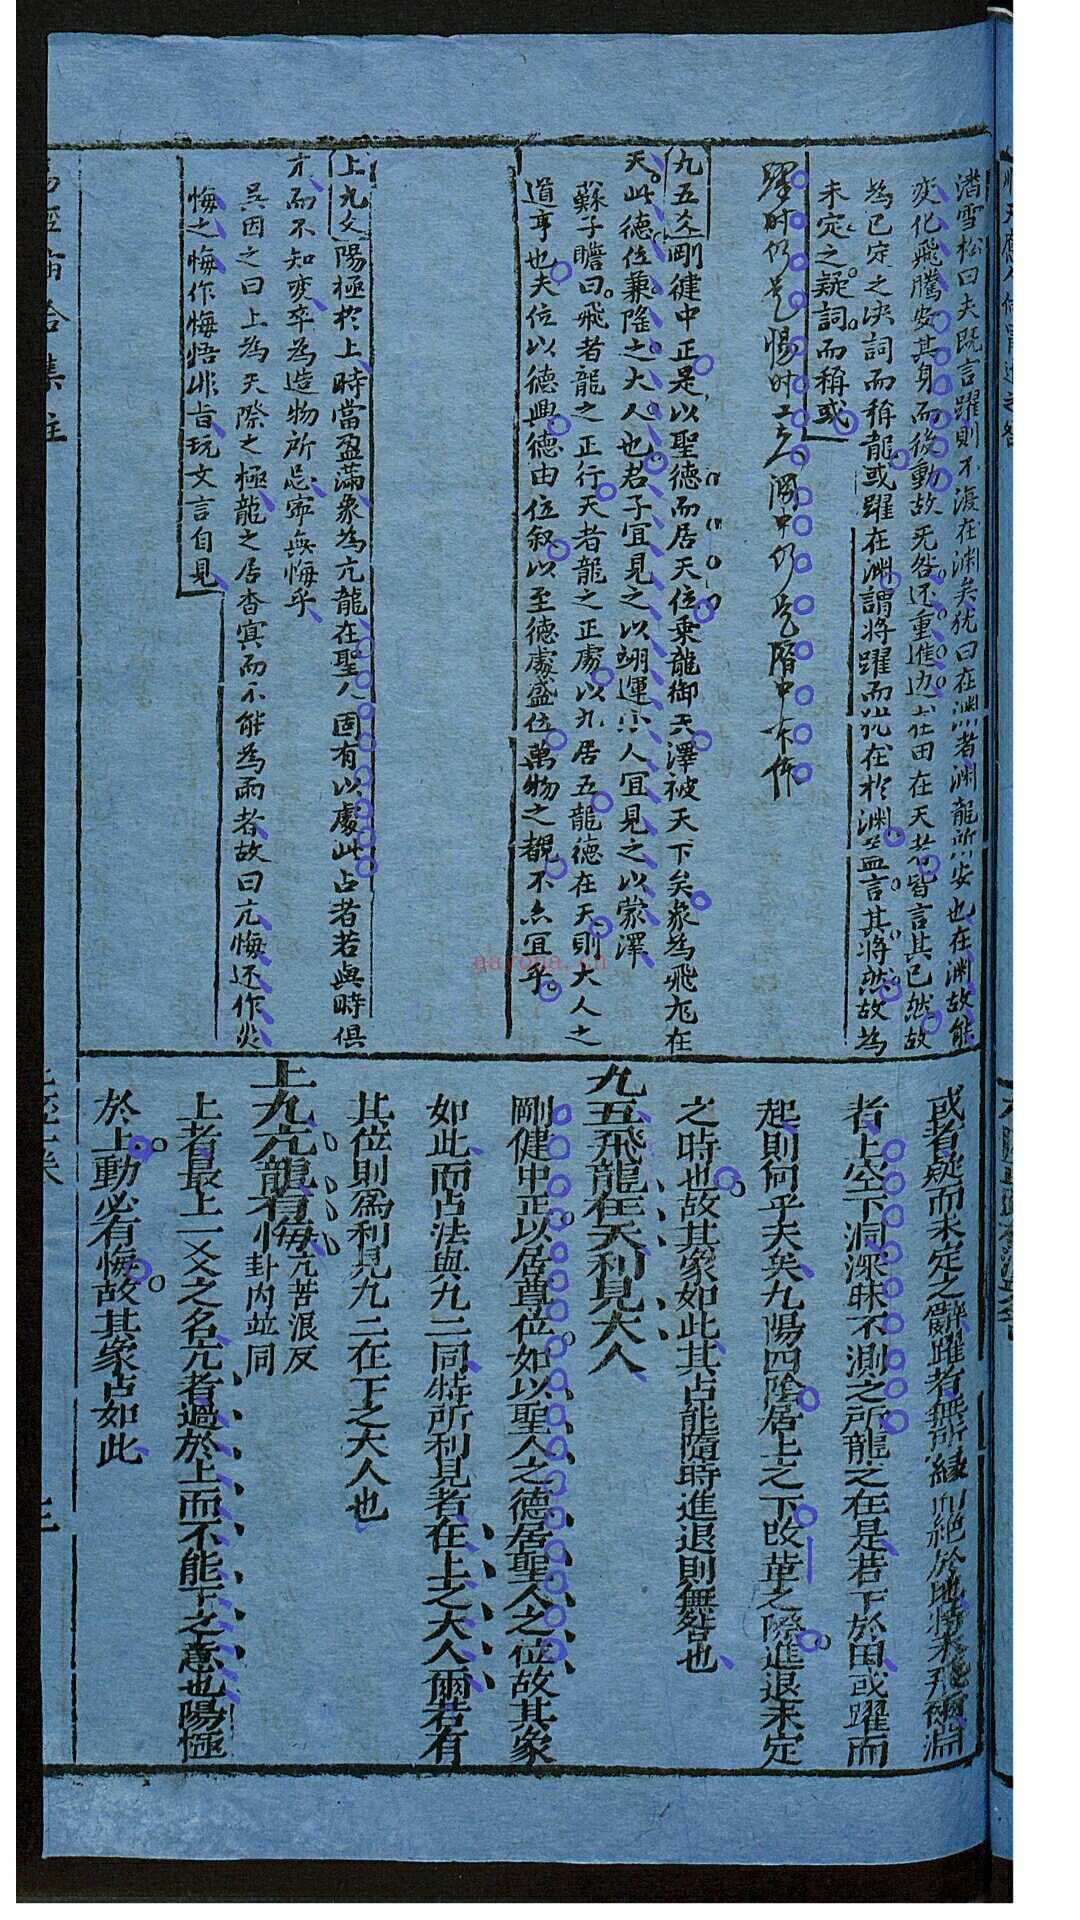 潛雪松曰夫既言躍則不復在淵矣猶曰在淵者淵龍所安也在淵故能
變化飛騰安其身而後動故无咎还重進边在田在天者皆言其已然故
為已定之決詞而稱龍或躍在淵謂將躍而犹在於淵盖言其將然故為
未定之疑詞而稱或
躍时仍是惕时工夫淵中仍是
九五爻剛健中正是以聖德而居天位乘龍御天澤被天下矣象為飛龙在
天此德位兼隆之大人也君子宜見之以翊運小人宜見之以蒙澤
蘇子瞻曰飛者龍之正行天者龍之正處以九居五龍德在天則大人之
道亨也夫位以德興德由位叙以至德處盛位萬物之覩不亦宜乎
上九爻陽極於上時當盈滿象為亢龍在聖人固有以處此占者若與時俱
亢而不知變卒為造物所忌寧無悔乎
吳因之曰上為天際之極龍之居杳冥而不能為雨者故曰亢悔还作災
悔之悔作悔悟非旨玩文言自見
或者疑而未定之辭躍者無所緣而絕於地特未飛爾淵
者上空下洞深昧不測之所龍之在是若下於田或躍而
起則向乎天矣九陽四陰居上之下改革之際進退未定
之時也故其象如此其占能隨時進退則無咎也
九五飛龍在天利見大人
剛健中正以居尊位如以聖人之德居聖人之位故其象
如此而占法與九二同特所利見者在上之大人爾若有
其位則為利見九二在下之大人也
上九亢龍有悔亢苦浪反卦内竝同
上者最上一爻之名亢者過於上而不能下之意也陽極
於上動必有悔故其象占如此
nayona.cn